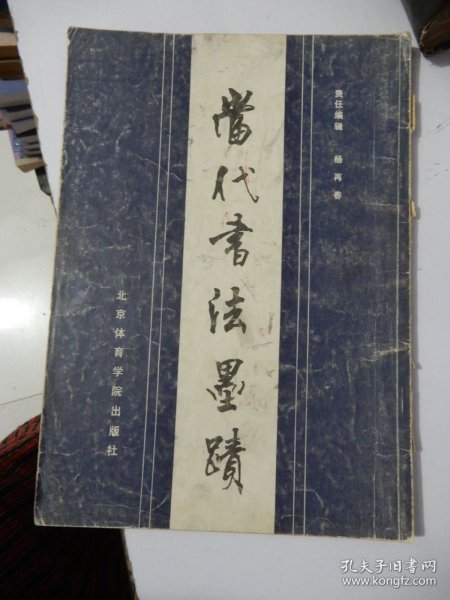 责任编辑 杨再春
當代书法墨蹟
北京体育学院出版社
孔夫子旧书网
www.kongfz.com